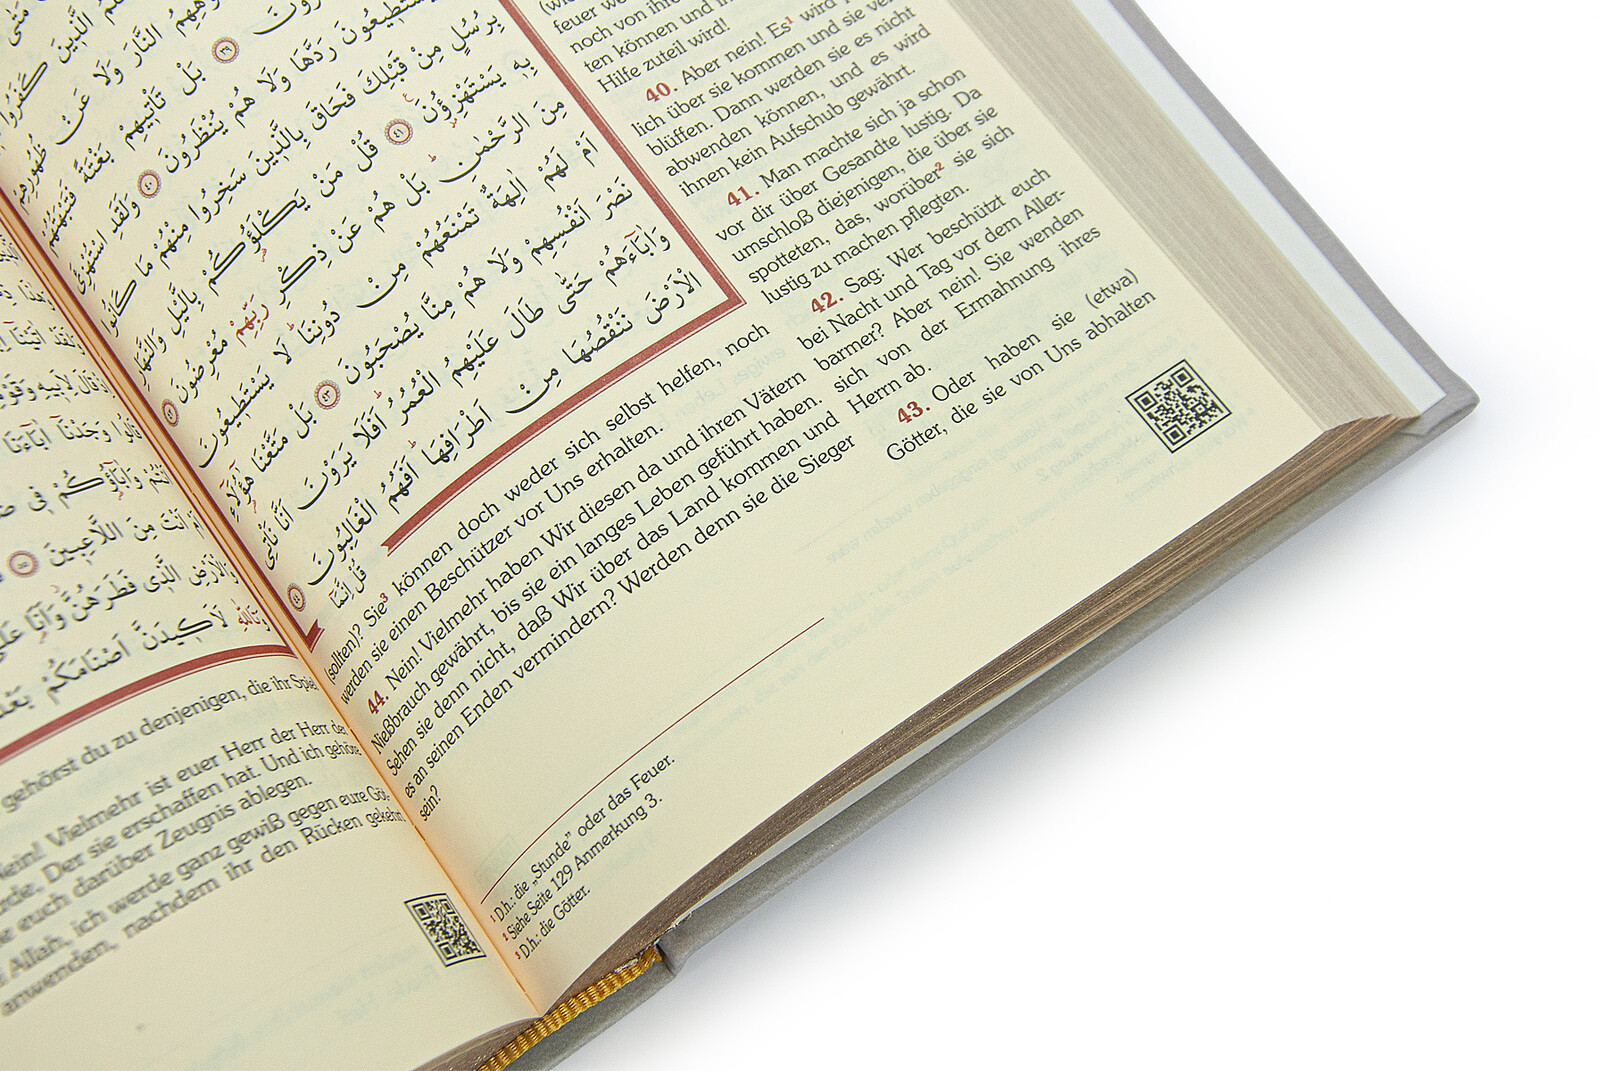 وَلَقَدْ اٰتَيْنَٓا
اِذْ قَالَ لِاَبٖيهِ وَقَوْمِ
قَالُوا وَجَدْنَٓا اٰبَٓاءَنَا
اَنْتُمْ وَاٰبَٓاؤُ۬كُمْ فٖى
اَمْ اَنْتَ مِنَ اللَّاعِبٖينَ ٥٥
وَالْاَرْضِ الَّذٖى فَطَرَهُنَّ وَاَنَا۬
وَتَاللّٰهِ لَاَكٖيدَنَّ اَصْنَامَكُمْ
gehörst du zu denjenigen, die ihr Spiel
Nein! Vielmehr ist euer Herr der Herr der
Erde, Der sie erschaffen hat. Und ich gehöre
euch darüber Zeugnis ablegen.
Allah, ich werde ganz gewiß gegen eure Göt-
anwenden, nachdem ihr den Rücken gekehrt
الَّذٖينَ كَفَرُوا
وُجُوهِهِمُ النَّارَ وَلَا عَنْ ظُهُورِهِمْ
٣٩ بَلْ تَاْتٖيهِمْ بَغْتَةً فَتَبْهَتُهُمْ
يَسْتَطٖيعُونَ رَدَّهَا وَلَا هُمْ يُنْظَرُونَ ٤٠ وَلَقَدِ اسْتُهْزِئَ
بِرُسُلٍ مِنْ قَبْلِكَ فَحَاقَ بِالَّذٖينَ سَخِرُوا مِنْهُمْ مَا كَانُوا
بِهٖ يَسْتَهْزِؤُ۫نَ ٤١ قُلْ مَنْ يَكْلَؤُ۬كُمْ بِالَّيْلِ وَالنَّهَارِ
مِنَ الرَّحْمٰنِ بَلْ هُمْ عَنْ ذِكْرِ رَبِّهِمْ مُعْرِضُونَ ٤٢
اَمْ لَهُمْ اٰلِهَةٌ تَمْنَعُهُمْ مِنْ دُونِنَا لَا يَسْتَطٖيعُونَ
نَصْرَ اَنْفُسِهِمْ وَلَا هُمْ مِنَّا يُصْحَبُونَ ٤٣ بَلْ مَتَّعْنَا هٰٓؤُلَٓاءِ
وَاٰبَٓاءَهُمْ حَتّٰى طَالَ عَلَيْهِمُ الْعُمُرُ اَفَلَا يَرَوْنَ اَنَّا نَاْتِى
الْاَرْضَ نَنْقُصُهَا مِنْ اَطْرَافِهَا اَفَهُمُ الْغَالِبُونَ ٤٤
قُلْ اِنَّمَٓا
noch von ihre
ten können und
Hilfe zuteil wird!
40. Aber nein! Es¹ wird
lich über sie kommen und sie ver-
blüffen. Dann werden sie es nicht
abwenden können, und es wird
ihnen kein Aufschub gewährt.
41. Man machte sich ja schon
vor dir über Gesandte lustig. Da
umschloß diejenigen, die über sie
spotteten, das, worüber² sie sich
lustig zu machen pflegten.
42. Sag: Wer beschützt euch
bei Nacht und Tag vor dem Aller-
barmer? Aber nein! Sie wenden
sich von der Ermahnung ihres
Herrn ab.
43. Oder haben sie (etwa)
Götter, die sie von Uns abhalten
(sollten)? Sie³ können doch weder sich selbst helfen, noch
werden sie einen Beschützer vor Uns erhalten.
44. Nein! Vielmehr haben Wir diesen da und ihren Vätern
Nießbrauch gewährt, bis sie ein langes Leben geführt haben.
Sehen sie denn nicht, daß Wir über das Land kommen und
es an seinen Enden vermindern? Werden denn sie die Sieger
sein?
¹ D.h.: die „Stunde” oder das Feuer.
² Siehe Seite 129 Anmerkung 3.
³ D.h.: die Götter.